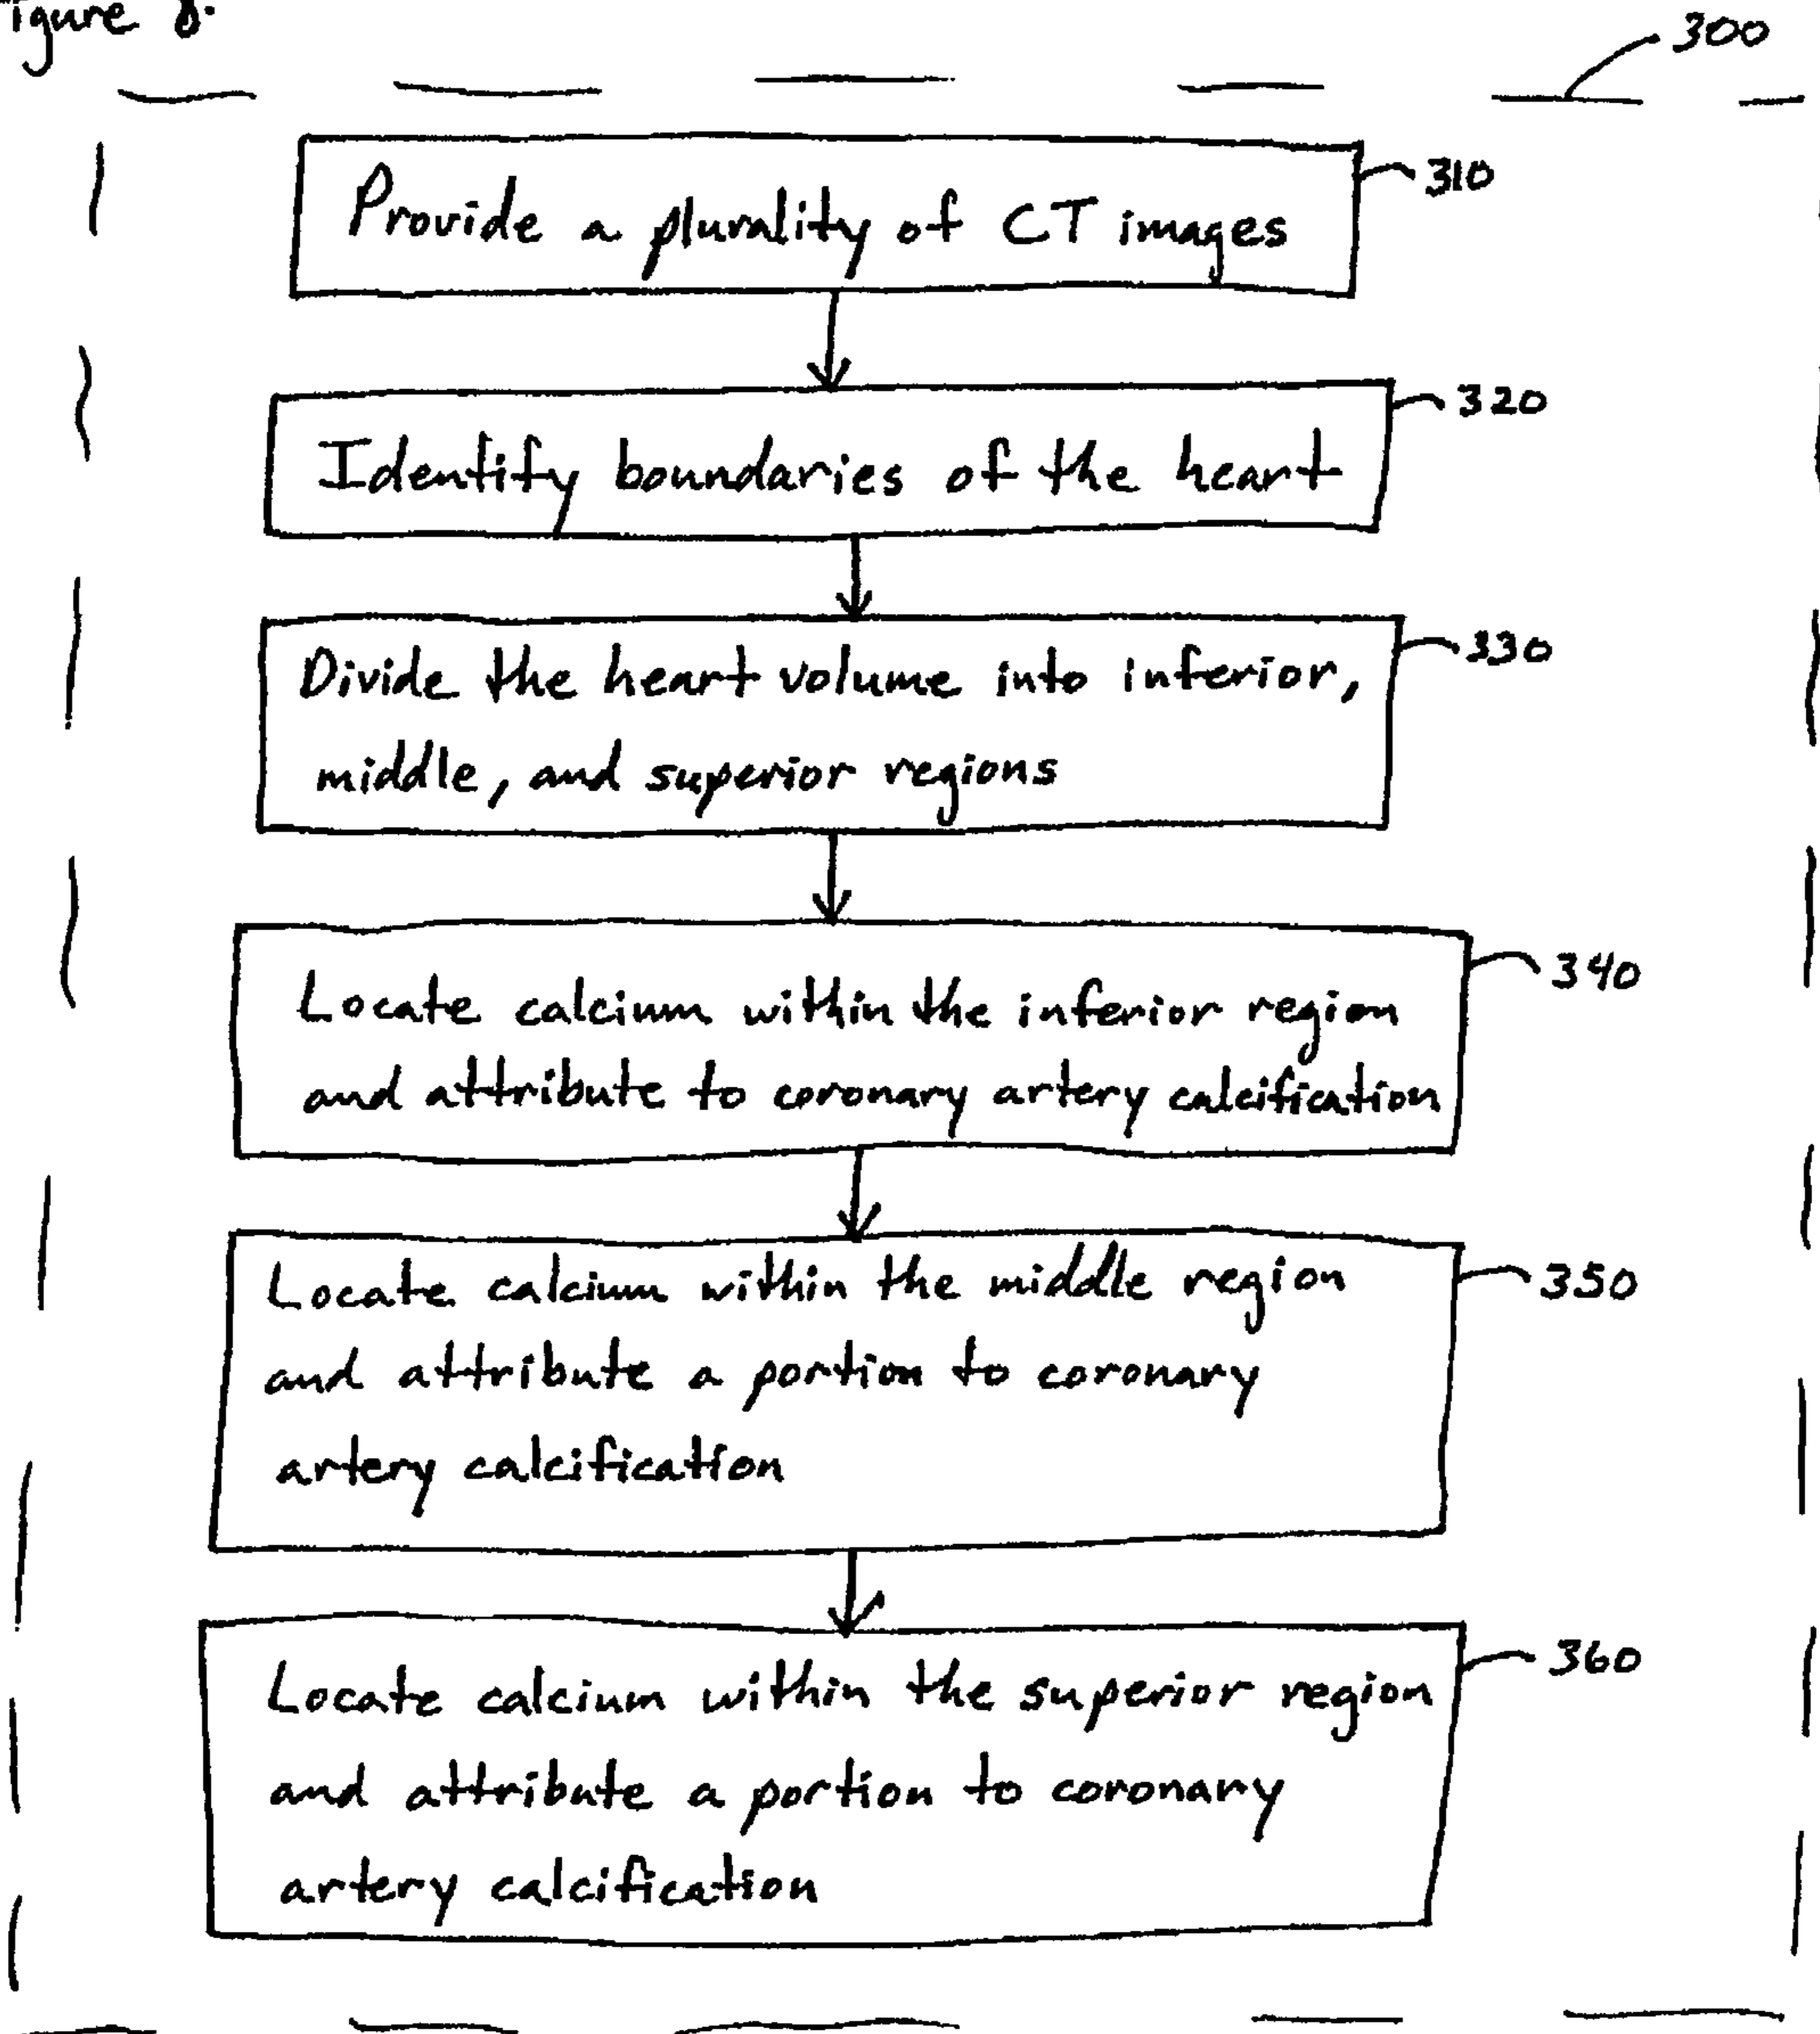 igure 8.
300
Provide a plurality of CT images
310
Identify boundaries of the heart
320
Divide the heart volume into inferior,
middle, and superior regions
330
Locate calcium within the inferior region
and attribute to coronary artery calcification
340
Locate calcium within the middle region
and attribute a portion to coronary
artery calcification
350
Locate calcium within the superior region
and attribute a portion to coronary
artery calcification
360